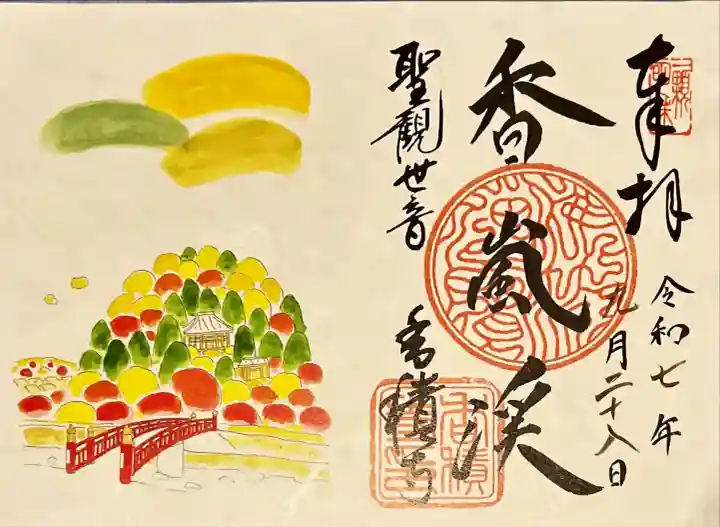 奉拝
令和七年
九月二十八日
香嵐渓
聖観世音
香積寺